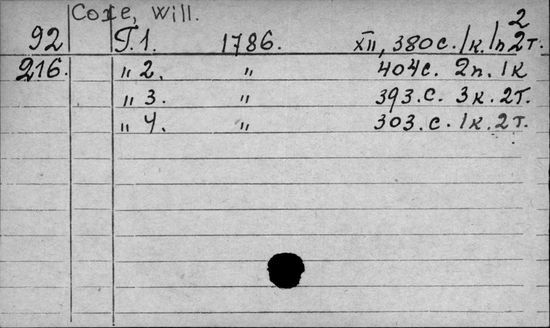 Coxe, Will.
2
92 Т.1. 1786. XII, 380 с. 1к. 1п. 2т.
216. " 2. " 404 с. 2п. 1к
" 3. " 393. с. 3к. 2т.
" 4. " 303. с. 1к. 2т.